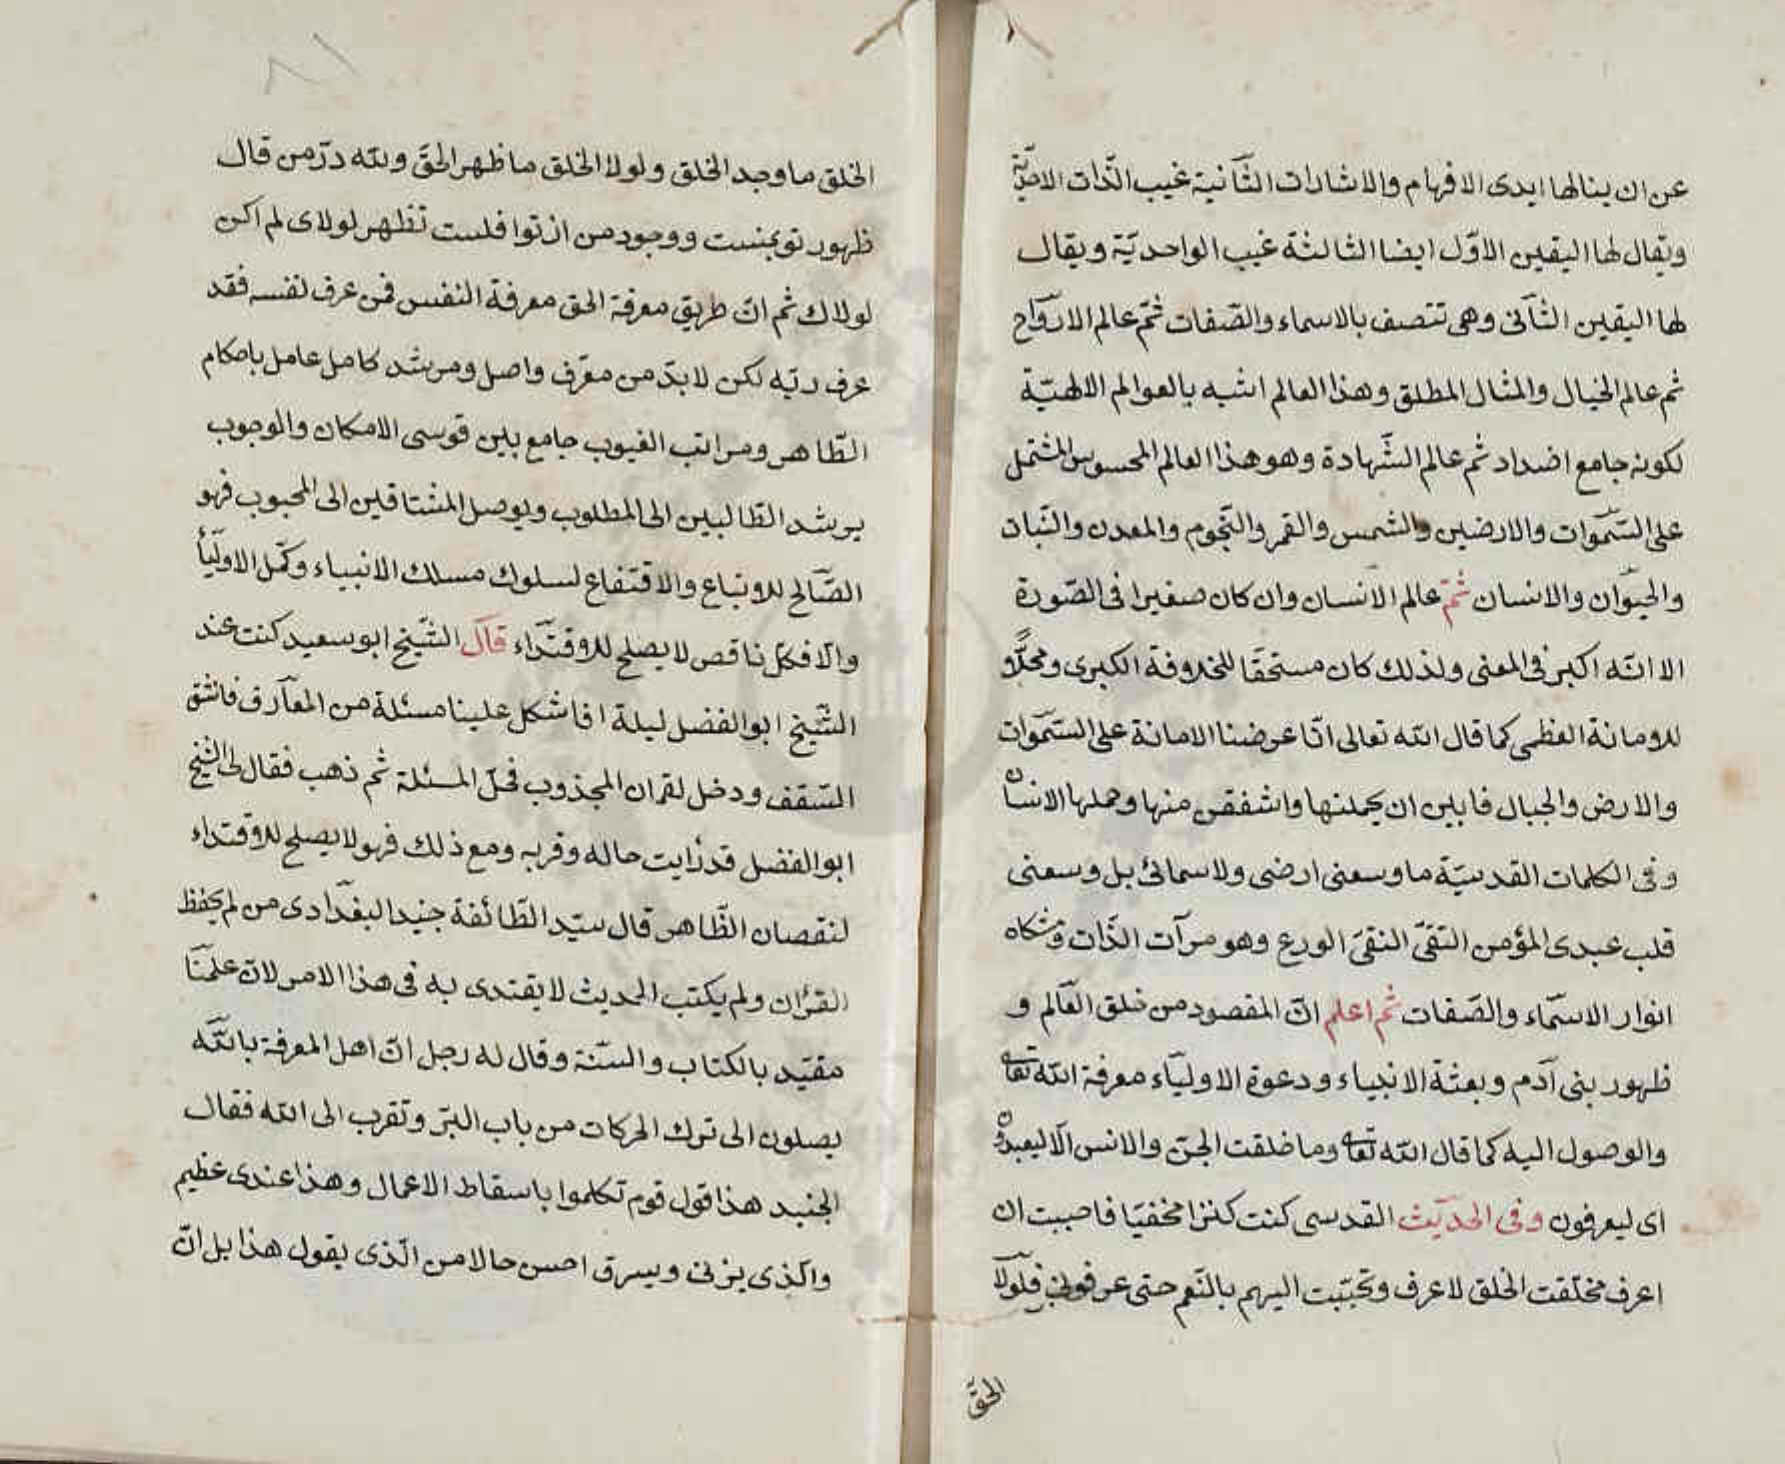 عن ان ينالها ايدى الافهام والاشارات الثّانية غيب الذّات الاحديّة
ويقال لها اليقين الاوّل ايضا الثالثة غيب الواحديّة ويقال
لها اليقين الثّانى وهى تتصف بالاسماء والصّفات ثمّ عالم الارواح
ثم عالم الخيال والمثال المطلق وهذا العالم اشبه بالعوالم الالهيّة
لكونه جامع اضداد ثم عالم الشّهادة وهو هذا العالم المحسوس المشتمل
على السّموات والارضين والشمس والقمر والنّجوم والمعدن والنّبات
والحيوان والانسان ثمّ عالم الانسان وان كان صغيرا فى الصّورة
الا انّه اكبر فى المعنى ولذلك كان مستحقّا للخلافة الكبرى ومحلّا
للامانة العظمى كما قال الله تعالى انّا عرضنا الامانة على السّموات
والارض والجبال فابين ان يحملنها واشفقن منها وحملها الانسان
وفى الكلمات القدسيّة ما وسعنى ارضى ولا سمائى بل وسعنى
قلب عبدى المؤمن التقىّ النقىّ الورع وهو مرآت الذّات ومشكاه
انوار الاسمّاء والصّفات ثم اعلم انّ المقصود من خلق العالم و
ظهور بنى آدم وبعثة الانبياء ودعوة الاولياء معرفة الله تعا
والوصول اليه كما قال الله تعا وما خلقت الجنّ والانس الّا ليعبدون
اى ليعرفون وفى الحديث القدسى كنت كنزا مخفيّا فاحببت ان
اعرف فخلقت الخلق لاعرف وتحبّبت اليهم بالنّعم حتى عرفونى فلولا
الحقّ
الخلق ما وجد الخلق ولولا الخلق ما ظهر الحقّ ولله درّ من قال
ظهور تو بمنست ووجود من از تو افلست تظهر لولاى لم اكن
لولاك ثم انّ طريق معرفة الحق معرفة النفس فمن عرف نفسه فقد
عرف ربّه لكن لا بدّ من معرّف واصل ومرشد كامل عامل باحكام
الظّاهر ومراتب الغيوب جامع بين قوسى الامكان والوجوب
يرشد الطّالبين الى المطلوب ويوصل المشتاقين الى المحبوب فهو
الصّالح للاتباع والاقتفاع لسلوك مسلك الانبياء وكمّل الاوليأ
والّا فكلّ ناقص لا يصلح للاقتداء قال الشّيخ ابو سعيد كنت عند
الشّيخ ابو الفضل ليلة افاشكل علينا مسئلة من المعارف فانشق
السّقف ودخل لقمان المجذوب فحلّ المسئلة ثم ذهب فقال لى الشّيخ
ابو الفضل قد رأيت حاله وقربه ومع ذلك فهو لا يصلح للاقتداء
لنقصان الظّاهر قال سيّد الطّائفة جنيد البغدادى من لم يحفظ
القرأن ولم يكتب الحديث لا يقتدى به فى هذا الامر لانّ علمنا
مقيّد بالكتاب والسّنة وقال له رجل انّ اهل المعرفة باللّه
يصلون الى ترك الحركات من باب البّر وتقرب الى الله فقال
الجنيد هذا قول قوم تكلموا باسقاط الاعمال وهذا عندى عظيم
والّذى يزنى ويسرق احسن حالا من الّذى يقول هذا بل انّ